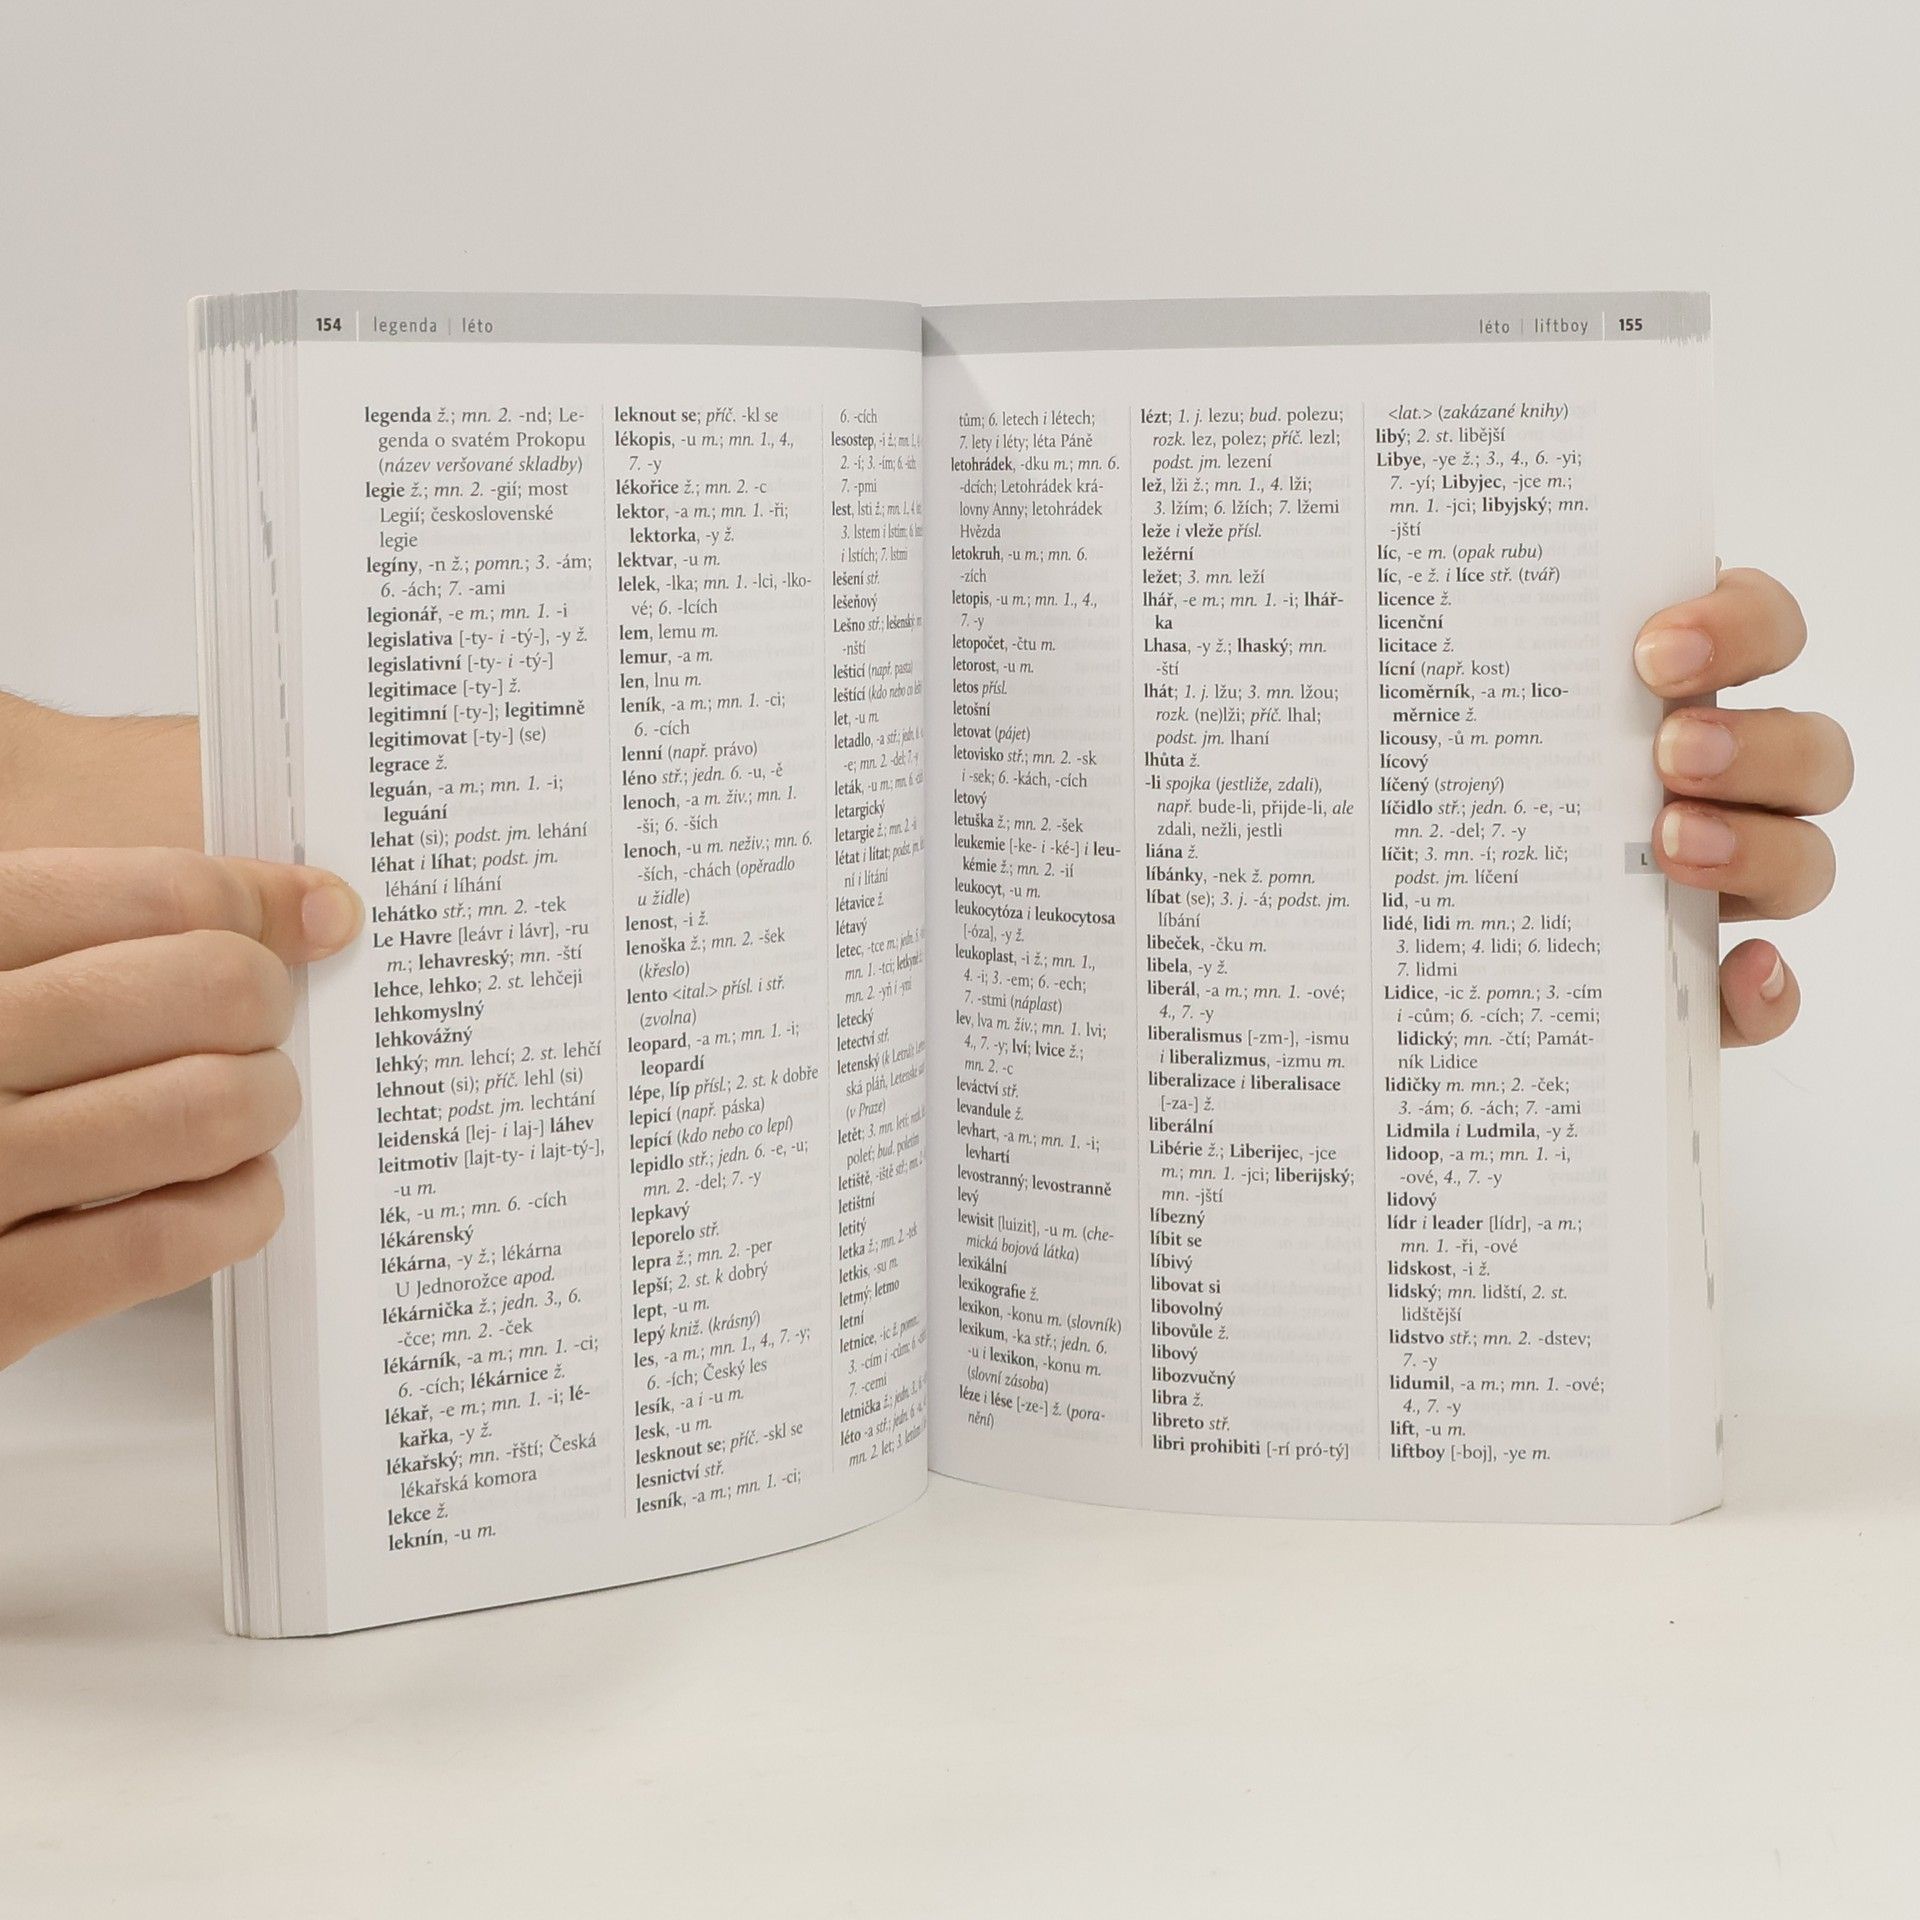 154 | legenda | léto
legenda ž.; mn. 2. -nd; Le-
genda o svatém Prokopu
(název veršované skladby)
legie ž.; mn. 2. -gií; most
Legií; československé
legie
legíny, -n ž.; pomn.; 3. -ám;
6. -ách; 7. -ami
legionář, -e m.; mn. 1. -i
legislativa [-ty- i -tý-], -y ž.
legislativní [-ty- i -tý-]
legitimace [-ty-] ž.
legitimní [-ty-]; legitimně
legitimovat [-ty-] (se)
legrace ž.
leguán, -a m.; mn. 1. -i;
leguání
lehat (si); podst. jm. lehání
léhat i líhat; podst. jm.
léhání i líhání
lehátko stř.; mn. 2. -tek
Le Havre [leávr i lávr], -ru
m.; lehavreský; mn. -ští
lehce, lehko; 2. st. lehčeji
lehkomyslný
lehkovážný
lehký; mn. lehcí; 2. st. lehčí
lehnout (si); příč. lehl (si)
lechtat; podst. jm. lechtání
leidenská [lej- i laj-] láhev
leitmotiv [lajt-ty- i lajt-tý-],
-u m.
lék, -u m.; mn. 6. -cích
lékárenský
lékárna, -y ž.; lékárna
U Jednorožce apod.
lékárnička ž.; jedn. 3., 6.
-čce; mn. 2. -ček
lékárník, -a m.; mn. 1. -ci;
6. -cích; lékárnice ž.
lékař, -e m.; mn. 1. -i; lé-
kařka, -y ž.
lékařský; mn. -řští; Česká
lékařská komora
lekce ž.
leknín, -u m.
leknout se; příč. -kl se
lékopis, -u m.; mn. 1., 4.,
7. -y
lékořice ž.; mn. 2. -c
lektor, -a m.; mn. 1. -ři;
lektorka, -y ž.
lektvar, -u m.
lelek, -lka; mn. 1. -lci, -lko-
vé; 6. -lcích
lem, lemu m.
lemur, -a m.
len, lnu m.
leník, -a m.; mn. 1. -ci;
6. -cích
lenní (např. právo)
léno stř.; jedn. 6. -u, -ě
lenoch, -a m. živ.; mn. 1.
-ši; 6. -ších
lenoch, -u m. neživ.; mn. 6.
-ších, -chách (opěradlo
u židle)
lenost, -i ž.
lenoška ž.; mn. 2. -šek
(křeslo)
lento <ital.> přísl. i stř.
(zvolna)
leopard, -a m.; mn. 1. -i;
leopardí
lépe, líp přísl.; 2. st. k dobře
lepicí (např. páska)
lepící (kdo nebo co lepí)
lepidlo stř.; jedn. 6. -e, -u;
mn. 2. -del; 7. -y
lepkavý
leporelo stř.
lepra ž.; mn. 2. -per
lepší; 2. st. k dobrý
lept, -u m.
lepý kniž. (krásný)
les, -a m.; mn. 1., 4., 7. -y;
6. -ích; Český les
lesík, -a i -u m.
lesk, -u m.
lesknout se; příč. -skl se
lesnictví stř.
lesník, -a m.; mn. 1. -ci;
6. -cích
lesostep, -i ž.; mn. 1.,
2. -í; 3. -ím; 6. -ích
7. -pmi
lest, lsti ž.; mn. 1., 4.
3. lstem i lstím; 6.
i lstích; 7. lstmi
lešení stř.
lešeňový
Lešno stř.; lešenský
-nští
lešticí (např. pasta)
leštící (kdo nebo co leští
let, -u m.
letadlo, -a stř.; jedn. 6.
-e; mn. 2. -del; 7. -y
leták, -u m.; mn. 6.
letargický
letargie ž.; mn. 2. -í
létat i lítat; podst. jm.
ní i lítání
létavice ž.
létavý
letec, -tce m.; jedn. 5.
mn. 1. -tci; letkyně
mn. 2. -yň i -yní
letecký
letectví stř.
letenský (k Letná);
ská pláň, Letenské
(v Praze)
letět; 3. mn. letí;
poleť; bud. poletím
letiště, -iště stř.; mn. 2.
letištní
letitý
letka ž.; mn. 2. -tek
letkis, -su m.
letmý; letmo
letní
letnice, -ic ž. pomn.
3. -cím i -cům; 6.
7. -cemi
letnička ž.; jedn. 3., 6.
léto -a stř.; jedn. 6.
mn. 2. let; 3.
léto | liftboy | 155
tům; 6. letech i létech;
7. lety i léty; léta Páně
letohrádek, -dku m.; mn. 6.
-dcích; Letohrádek krá-
lovny Anny; letohrádek
Hvězda
letokruh, -u m.; mn. 6.
-zích
letopis, -u m.; mn. 1., 4.,
7. -y
letopočet, -čtu m.
letorost, -u m.
letos přísl.
letošní
letovat (pájet)
letovisko stř.; mn. 2. -sk
i -sek; 6. -kách, -cích
letový
letuška ž.; mn. 2. -šek
leukemie [-ke- i -ké-] i leu-
kémie ž.; mn. 2. -ií
leukocyt, -u m.
leukocytóza i leukocytosa
[-óza], -y ž.
leukoplast, -i ž.; mn. 1.,
4. -i; 3. -em; 6. -ech;
7. -stmi (náplast)
lev, lva m. živ.; mn. 1. lvi;
4., 7. -y; lví; lvice ž.;
mn. 2. -c
leváctví stř.
levandule ž.
levhart, -a m.; mn. 1. -i;
levhartí
levostranný; levostranně
levý
lewisit [luizit], -u m. (che-
mická bojová látka)
lexikální
lexikografie ž.
lexikon, -konu m. (slovník)
lexikum, -ka stř.; jedn. 6.
-u i lexikon, -konu m.
(slovní zásoba)
léze i lése [-ze-] ž. (pora-
nění)
lézt; 1. j. lezu; bud. polezu;
rozk. lez, polez; příč. lezl;
podst. jm. lezení
lež, lži ž.; mn. 1., 4. lži;
3. lžím; 6. lžích; 7. lžemi
leže i vleže přísl.
ležérní
ležet; 3. mn. leží
lhář, -e m.; mn. 1. -i; lhář-
ka
Lhasa, -y ž.; lhaský; mn.
-ští
lhát; 1. j. lžu; 3. mn. lžou;
rozk. (ne)lži; příč. lhal;
podst. jm. lhaní
lhůta ž.
-li spojka (jestliže, zdali),
např. bude-li, přijde-li, ale
zdali, nežli, jestli
liána ž.
líbánky, -nek ž. pomn.
líbat (se); 3. j. -á; podst. jm.
líbání
libeček, -čku m.
libela, -y ž.
liberál, -a m.; mn. 1. -ové;
4., 7. -y
liberalismus [-zm-], -ismu
i liberalizmus, -izmu m.
liberalizace i liberalisace
[-za-] ž.
liberální
Libérie ž.; Liberijec, -jce
m.; mn. 1. -jci; liberijský;
mn. -jští
líbezný
líbit se
líbivý
libovat si
libovolný
libovůle ž.
libový
libozvučný
libra ž.
libreto stř.
libri prohibiti [-rí pró-tý]
<lat.> (zakázané knihy)
libý; 2. st. libější
Libye, -ye ž.; 3., 4., 6. -yi;
7. -yí; Libyjec, -jce m.;
mn. 1. -jci; libyjský; mn.
-jští
líc, -e m. (opak rubu)
líc, -e ž. i líce stř. (tvář)
licence ž.
licenční
licitace ž.
lícní (např. kost)
licoměrník, -a m.; lico-
měrnice ž.
licousy, -ů m. pomn.
lícový
líčený (strojený)
líčidlo stř.; jedn. 6. -e, -u;
mn. 2. -del; 7. -y
líčit; 3. mn. -í; rozk. lič;
podst. jm. líčení
lid, -u m.
lidé, lidi m. mn.; 2. lidí;
3. lidem; 4. lidi; 6. lidech;
7. lidmi
Lidice, -ic ž. pomn.; 3. -cím
i -cům; 6. -cích; 7. -cemi;
lidický; mn. -čtí; Památ-
ník Lidice
lidičky m. mn.; 2. -ček;
3. -ám; 6. -ách; 7. -ami
Lidmila i Ludmila, -y ž.
lidoop, -a m.; mn. 1. -i,
-ové, 4., 7. -y
lidový
lídr i leader [lídr], -a m.;
mn. 1. -ři, -ové
lidskost, -i ž.
lidský; mn. lidští, 2. st.
lidštější
lidstvo stř.; mn. 2. -dstev;
7. -y
lidumil, -a m.; mn. 1. -ové;
4., 7. -y
lift, -u m.
liftboy [-boj], -ye m.
L